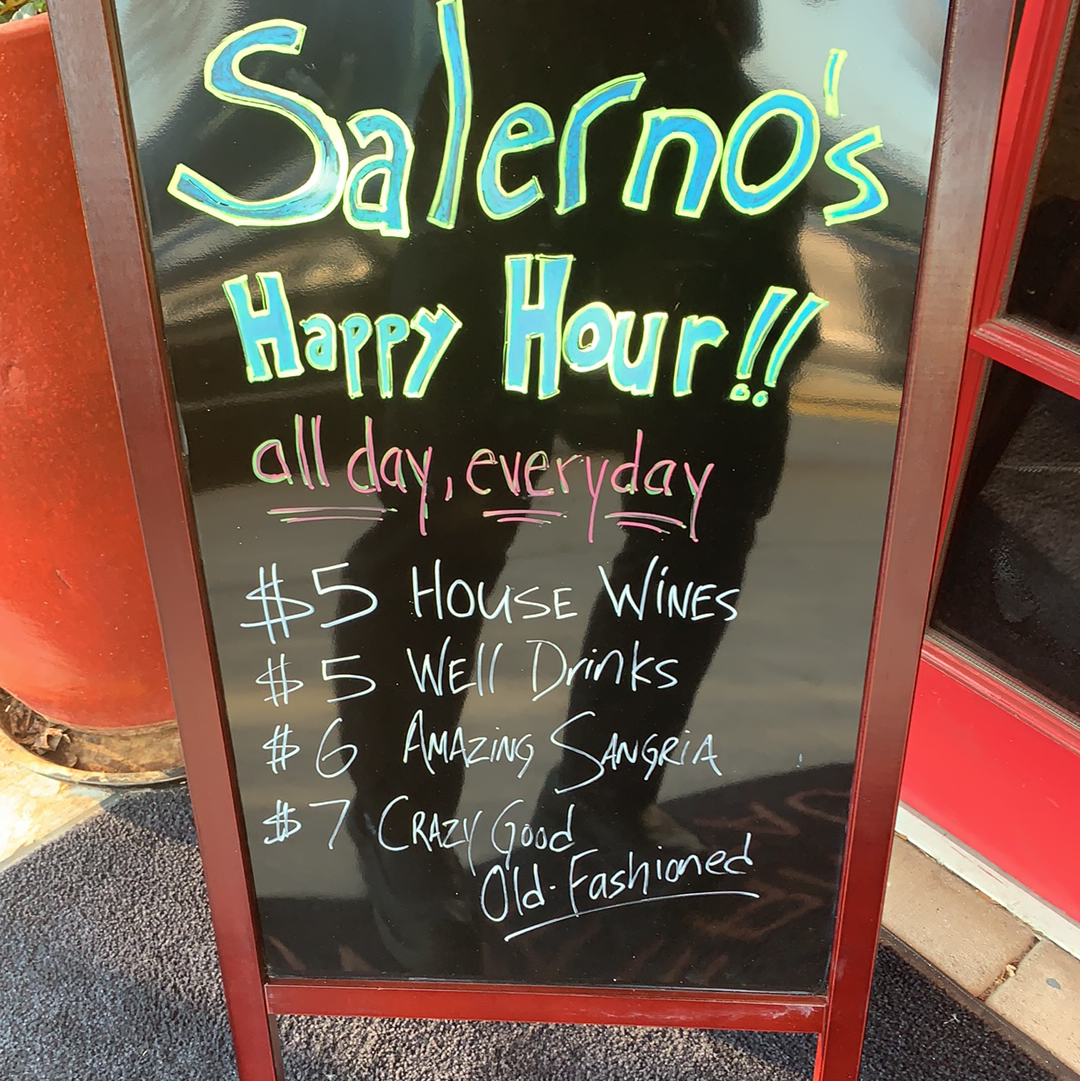 Salerno's
Happy Hour!!
all day, everyday
$5 House Wines
$5 Well Drinks
$6 Amazing Sangria
$7 Crazy Good
Old-Fashioned